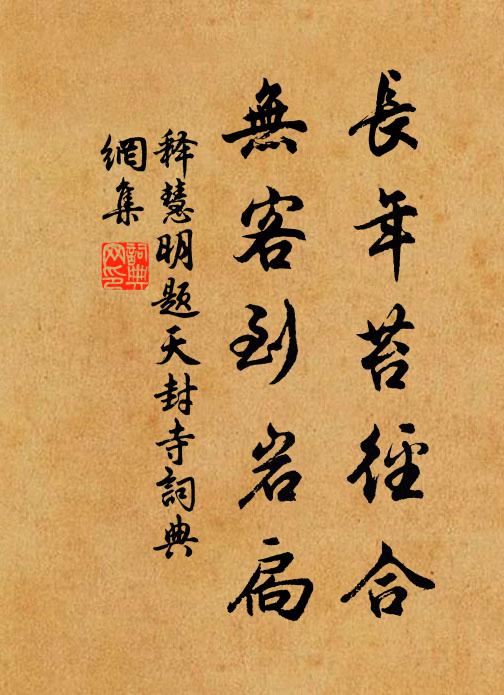 長年苔徑合
無客到岩扃
释慧明题天封寺詞典
網集
詞典
网印